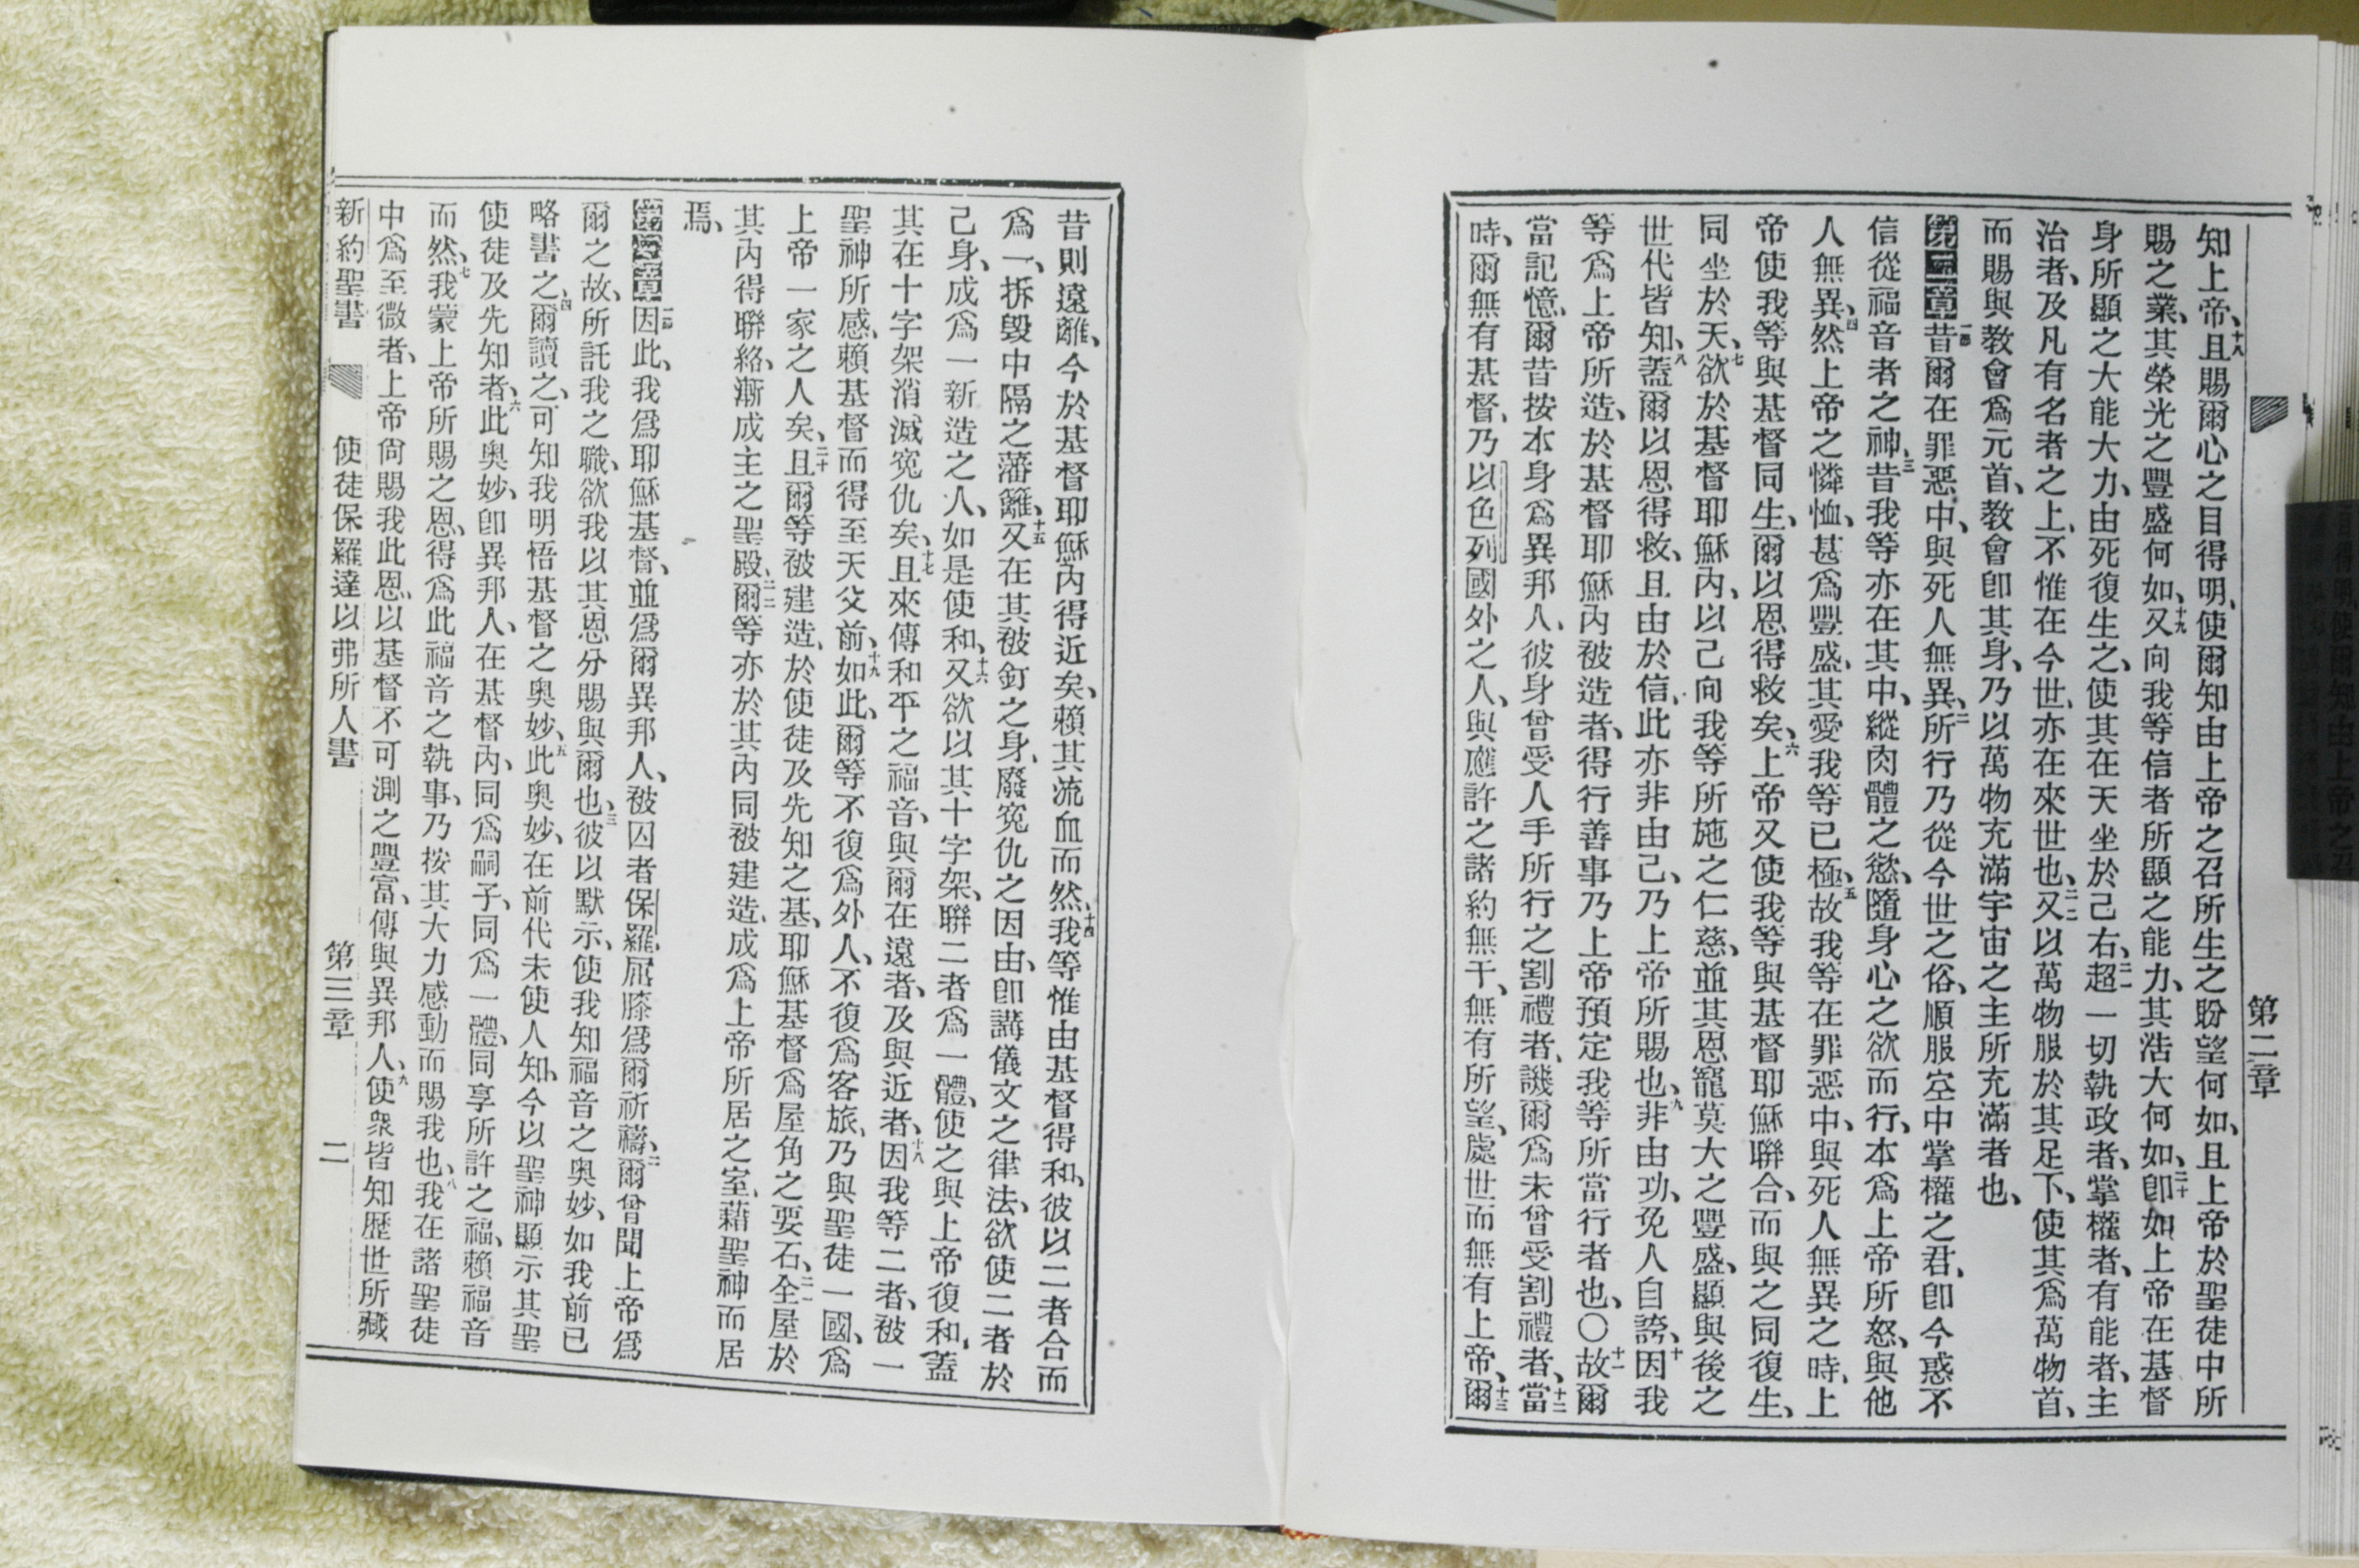 第二章
知上帝、十八且賜爾心之目得明、使爾知由上帝之召所生之盼望何如、且上帝於聖徒中所
賜之業、其榮光之豐盛何如、十九又向我等信者所顯之能力、其浩大何如、二十卽如上帝在基督
身所顯之大能大力、由死復生之、使其在天坐於己右、二一超一切執政者、掌權者、有能者、主
治者、及凡有名者之上、不惟在今世、亦在來世也、二二又以萬物服於其足下、使其爲萬物首、
而賜與教會爲元首、教會卽其身、乃以萬物充滿宇宙之主所充滿者也、
第二章一節昔爾在罪惡中、與死人無異、二所行乃從今世之俗、順服空中掌權之君、卽今惑不
信從福音者之神、三昔我等亦在其中、縱肉體之慾、隨身心之欲而行、本爲上帝所怒、與他
人無異、四然上帝之憐恤、甚爲豐盛、其愛我等已極、五故我等在罪惡中、與死人無異之時、上
帝使我等與基督同生、爾以恩得救矣、六上帝又使我等與基督耶穌聯合、而與之同復生、
同坐於天、七欲於基督耶穌內、以己向我等所施之仁慈、並其恩寵莫大之豐盛、顯與後之
世代皆知、八蓋爾以恩得救、且由於信、此亦非由己、乃上帝所賜也、九非由功、免人自誇、十因我
等爲上帝所造、於基督耶穌內被造者、得行善事乃上帝預定我等所當行者也、〇十一故爾
當記憶、爾昔按本身爲異邦人、彼身曾受人手所行之割禮者、譏爾爲未曾受割禮者、十二當
時、爾無有基督、乃以色列國外之人、與應許之諸約無干、無有所望、處世而無有上帝、十三爾
昔則遠離、今於基督耶穌內得近矣、賴其流血而然、十四我等惟由基督得和、彼以二者合而
爲一、拆毀中隔之藩籬、十五又在其被釘之身、廢寃仇之因由、卽講儀文之律法、欲使二者於
己身、成爲一新造之人、如是使和、十六又欲以其十字架、聯二者爲一體、使之與上帝復和、蓋
其在十字架消滅寃仇矣、十七且來傳和平之福音、與爾在遠者、及與近者、十八因我等二者、被一
聖神所感、賴基督而得至天父前、十九如此、爾等不復爲外人、不復爲客旅、乃與聖徒一國、爲
上帝一家之人矣、二十且爾等被建造、於使徒及先知之基、耶穌基督爲屋角之要石、二一全屋於
其內得聯絡、漸成主之聖殿、二二爾等亦於其內同被建造、成爲上帝所居之室、藉聖神而居
焉、
第三章一節因此、我爲耶穌基督、並爲爾異邦人、被囚者保羅、屈膝爲爾祈禱、二爾曾聞上帝爲
爾之故、所託我之職、欲我以其恩分賜與爾也、三彼以默示、使我知福音之奧妙、如我前已
略書之、四爾讀之、可知我明悟基督之奧妙、五此奧妙、在前代未使人知、今以聖神顯示其聖
使徒及先知者、六此奧妙、卽異邦人、在基督內、同爲嗣子、同爲一體、同享所許之福、賴福音
而然、七我蒙上帝所賜之恩、得爲此福音之執事、乃按其大力感動而賜我也、八我在諸聖徒
中爲至微者、上帝尙賜我此恩、以基督不可測之豐富、傳與異邦人、九使衆皆知歷世所藏
新約聖書 使徒保羅達以弗所人書 第三章 二